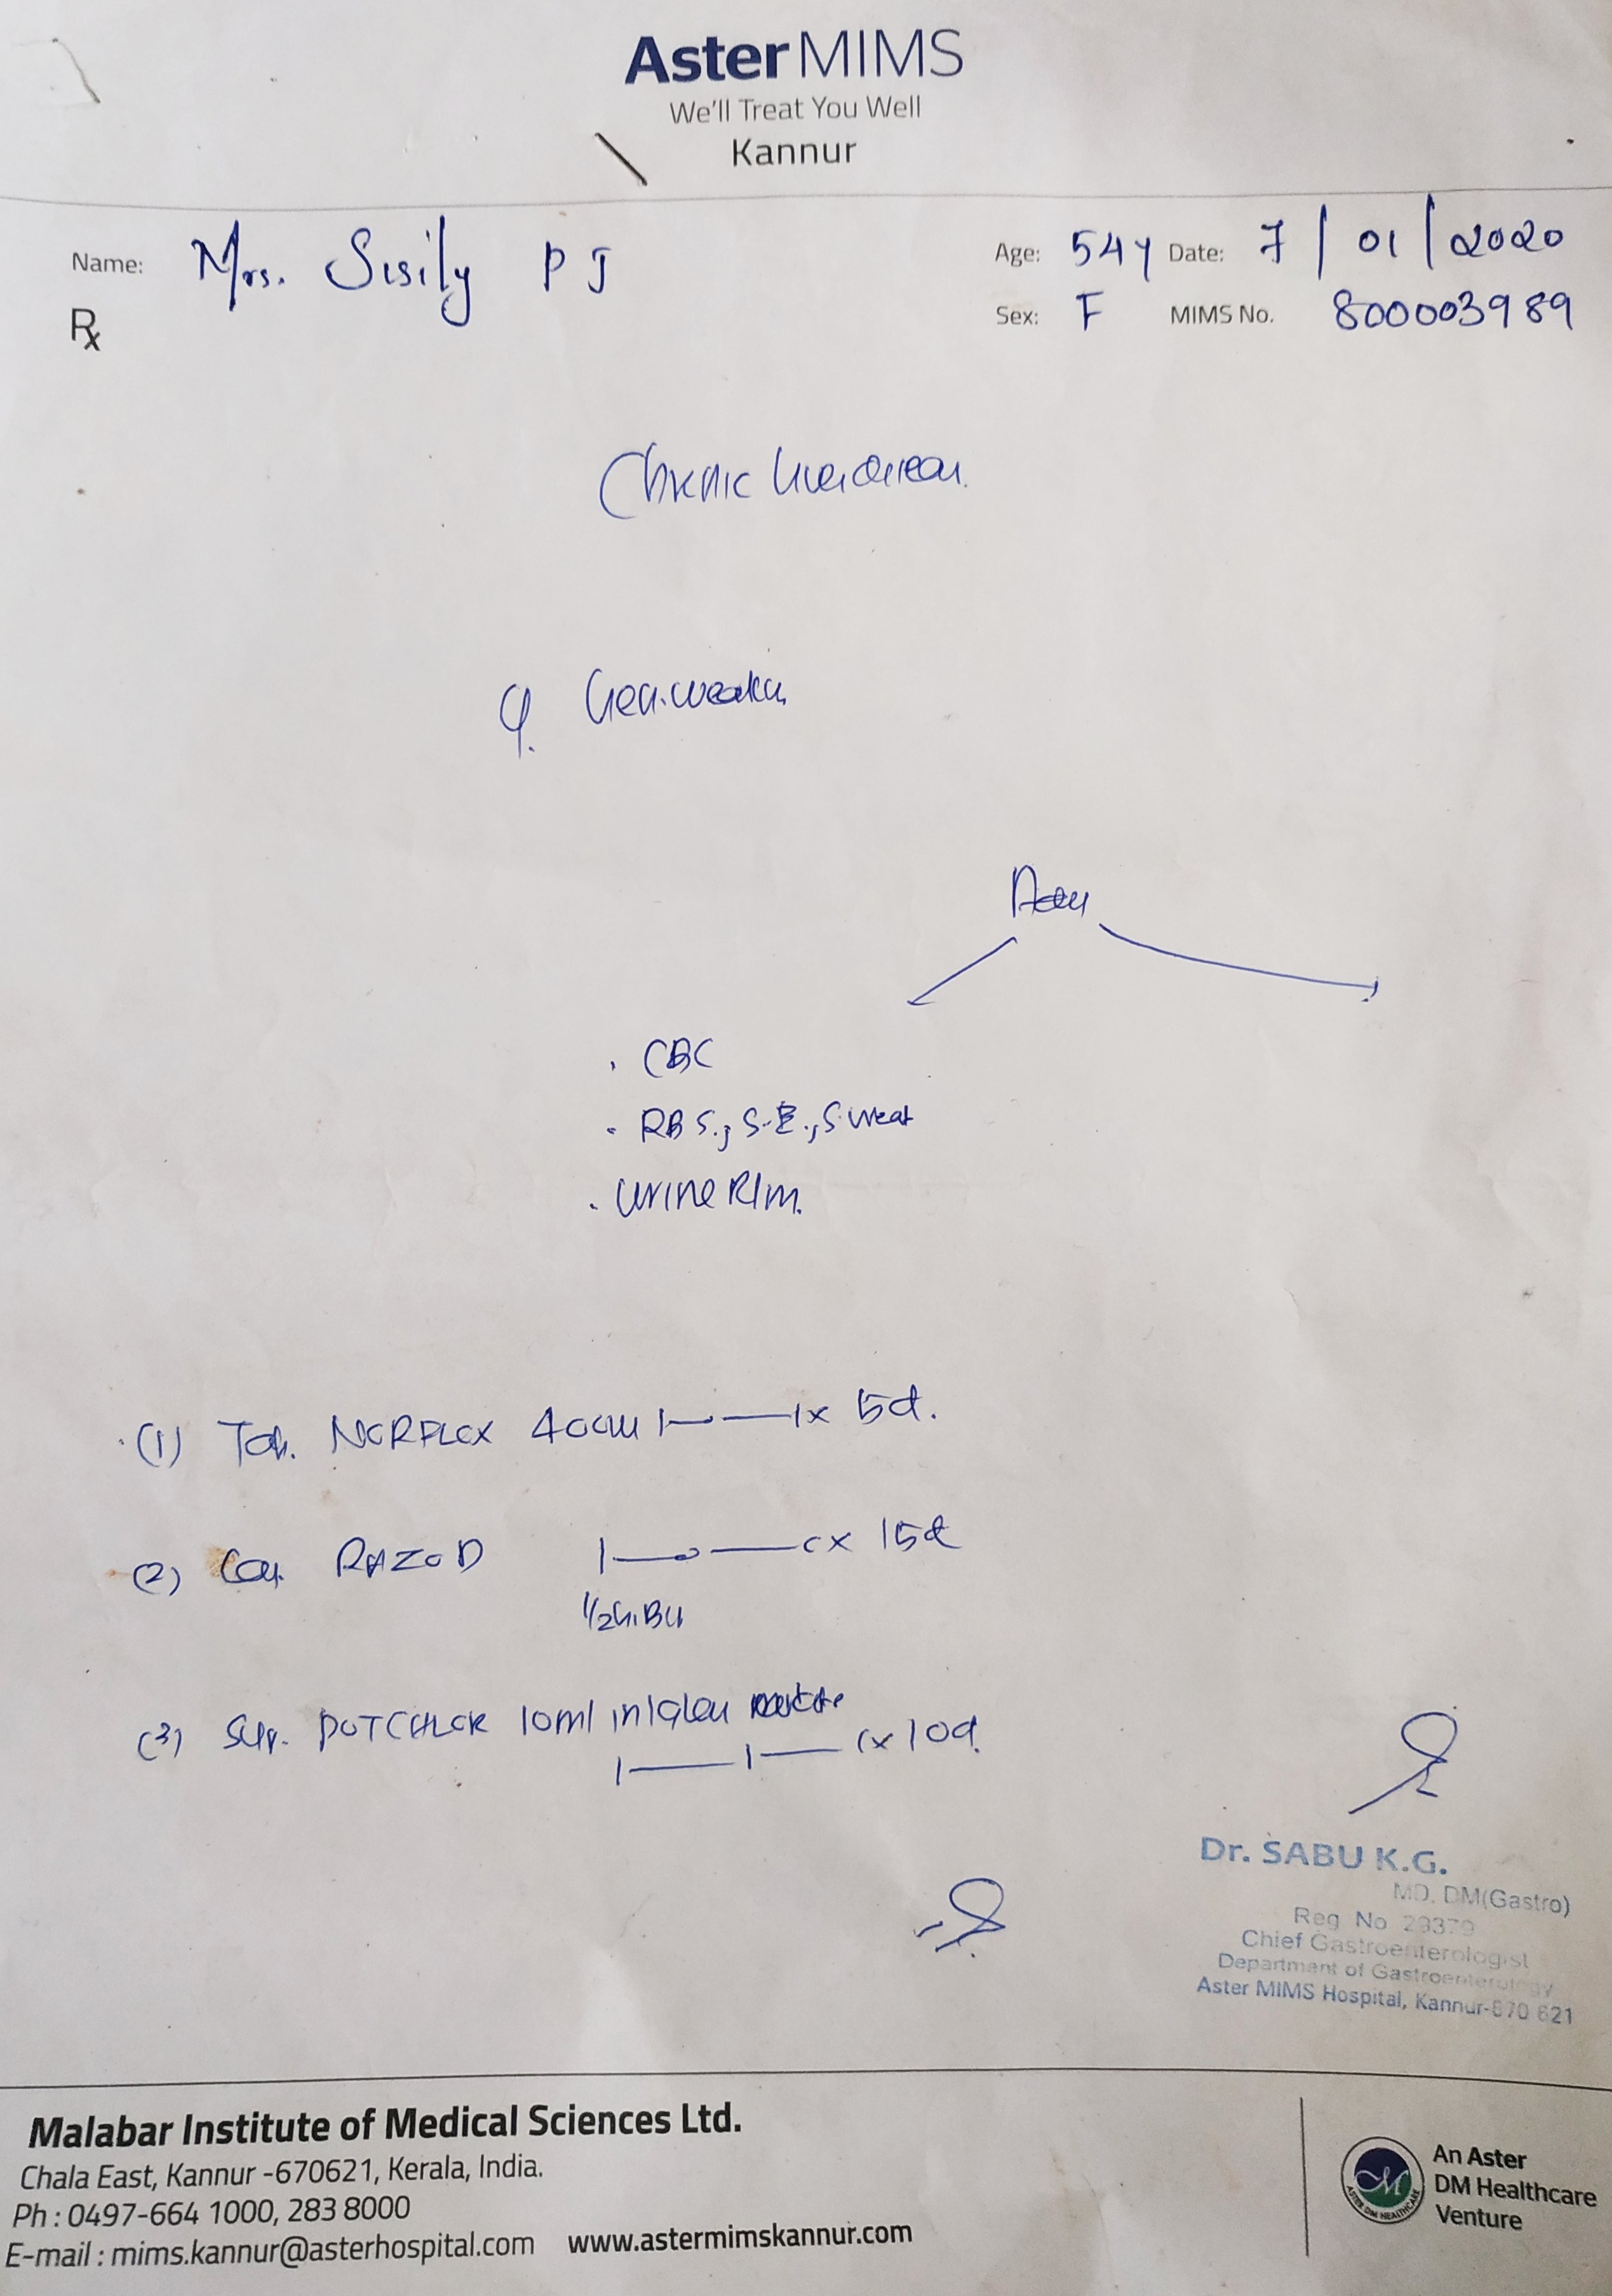 Aster MIMS
We'll Treat You Well
Kannur
Name: Mrs. Sisily P J Age: 54y Date: 7/01/2020
Rx Sex: F MIMS No. 800003989
Chronic liver disease
Gen. weakness
Adv
. CBC
. RBS., S.E., S. Urea
. Urine R/m.
(1) Tab. NORFLOX 400 1—o—1 x 5d.
(2) Cap. RAZO D 1—o—o x 15d
1/2 h. B4
(3) Syp. POTCHLOR 10ml in 1 glass water
1—1—1 x 10d.
Dr. SABU K.G.
MD, DM(Gastro)
Reg No 29379
Chief Gastroenterologist
Department of Gastroenterology
Aster MIMS Hospital, Kannur-670 621
Malabar Institute of Medical Sciences Ltd.
Chala East, Kannur -670621, Kerala, India.
Ph : 0497-664 1000, 283 8000
E-mail : mims.kannur@asterhospital.com www.astermimskannur.com
M
ASTER DM HEALTHCARE
An Aster
DM Healthcare
Venture